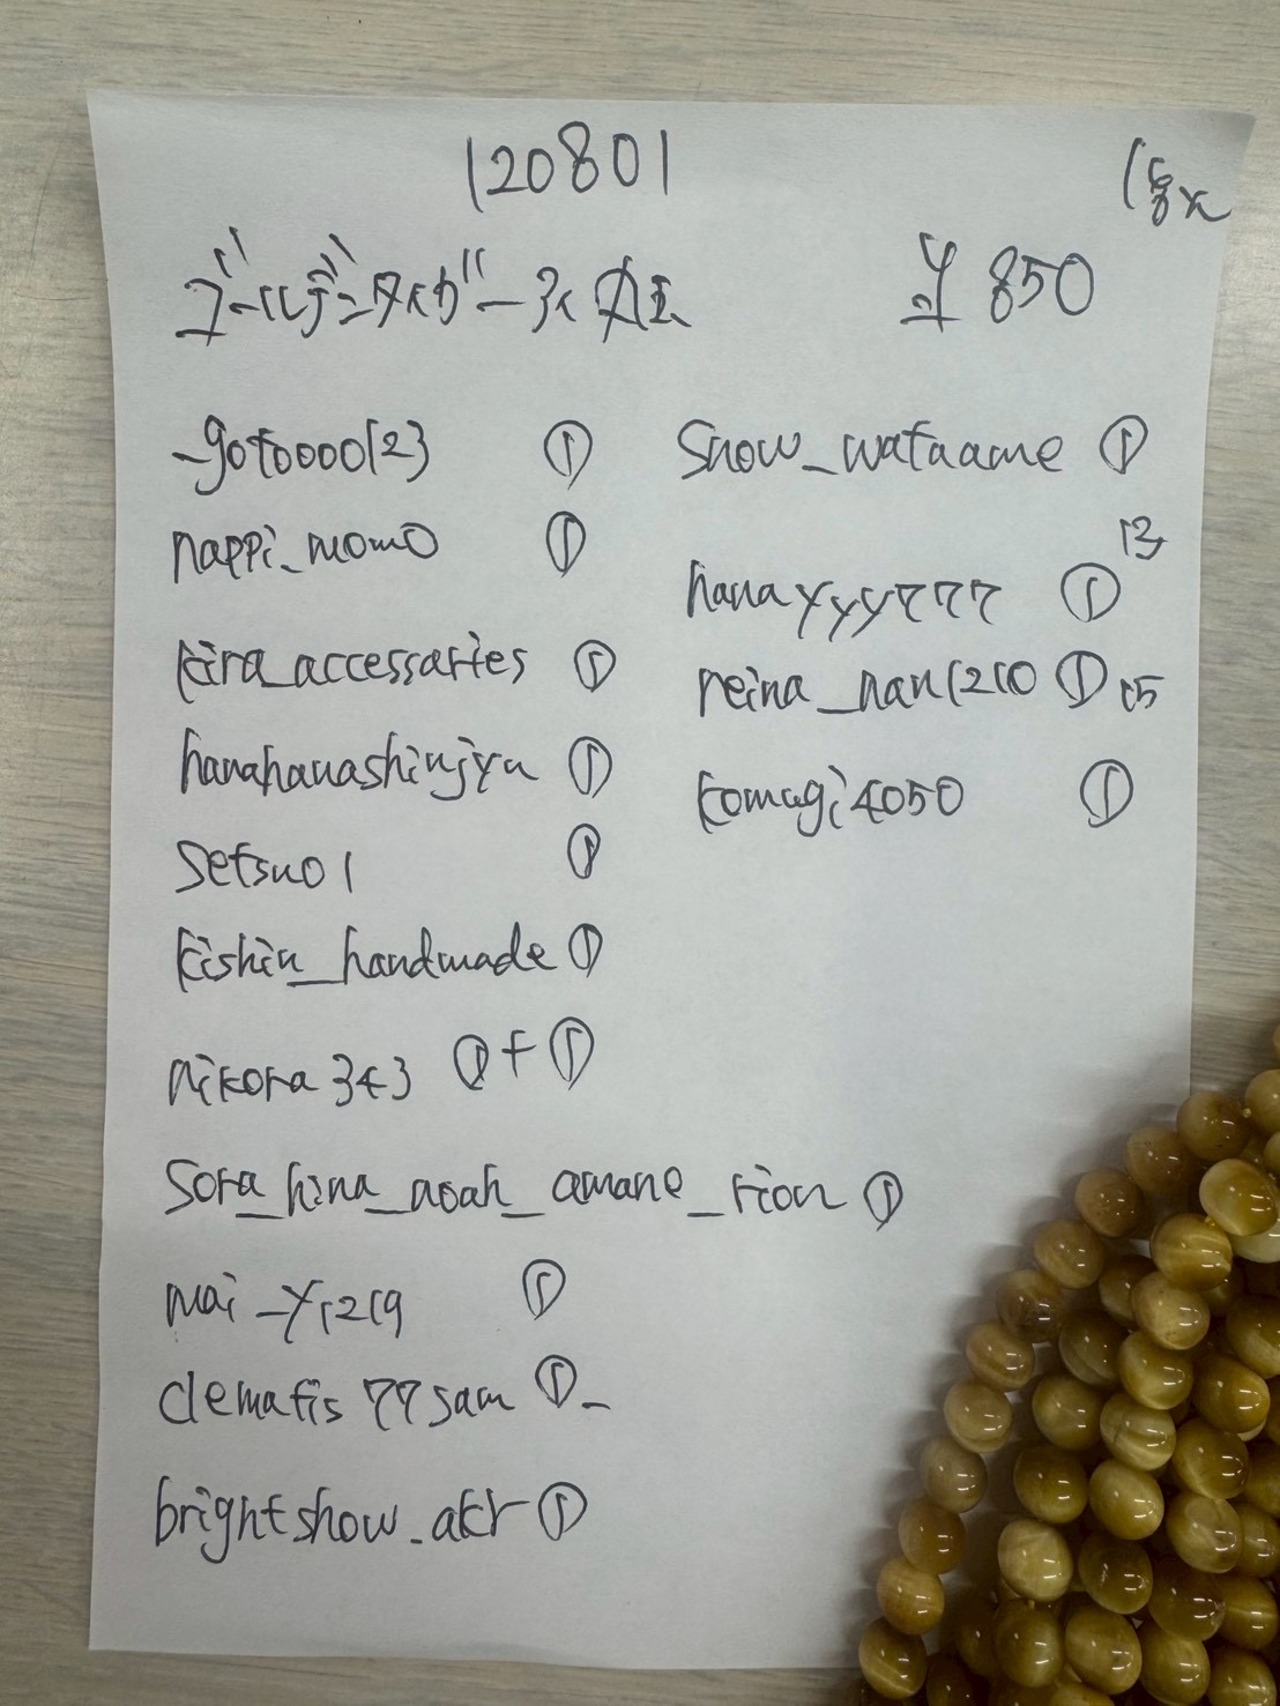 120801
ゴールデンタイガーアイ 丸玉 ¥850
_goto000123 ①
nappi_momo ①
kira_accessaries ①
hanahanashinjyu ①
setsuo1 ①
kishin_handmade ①
nikora343 ①+①
sora_hina_noah_amane_rion ①
mai_y1219 ①
clematis77sam ①-
brightshow_akr ①
snow_wataame ①
13
hanayyy777 ①
reina_nan1210 ① 15
komugi4050 ①